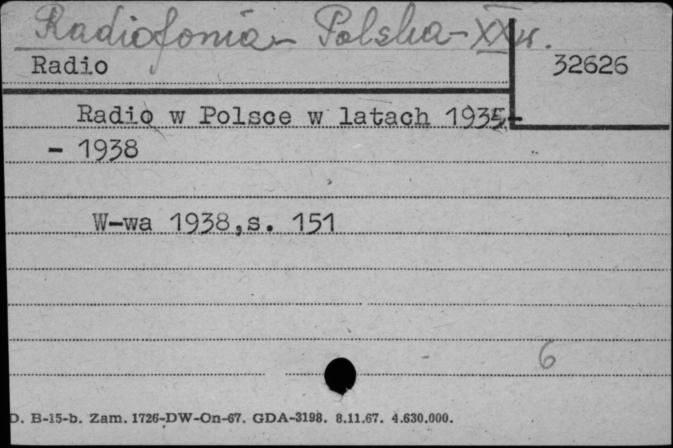 Radiofonia - Polska - XX w.
Radio
32626
Radio w Polsce w latach 1935-
- 1938
W-wa 1938,s. 151
6
D. B-15-b. Zam. 1726-DW-On-67. GDA-3198. 8.11.67. 4.630.000.